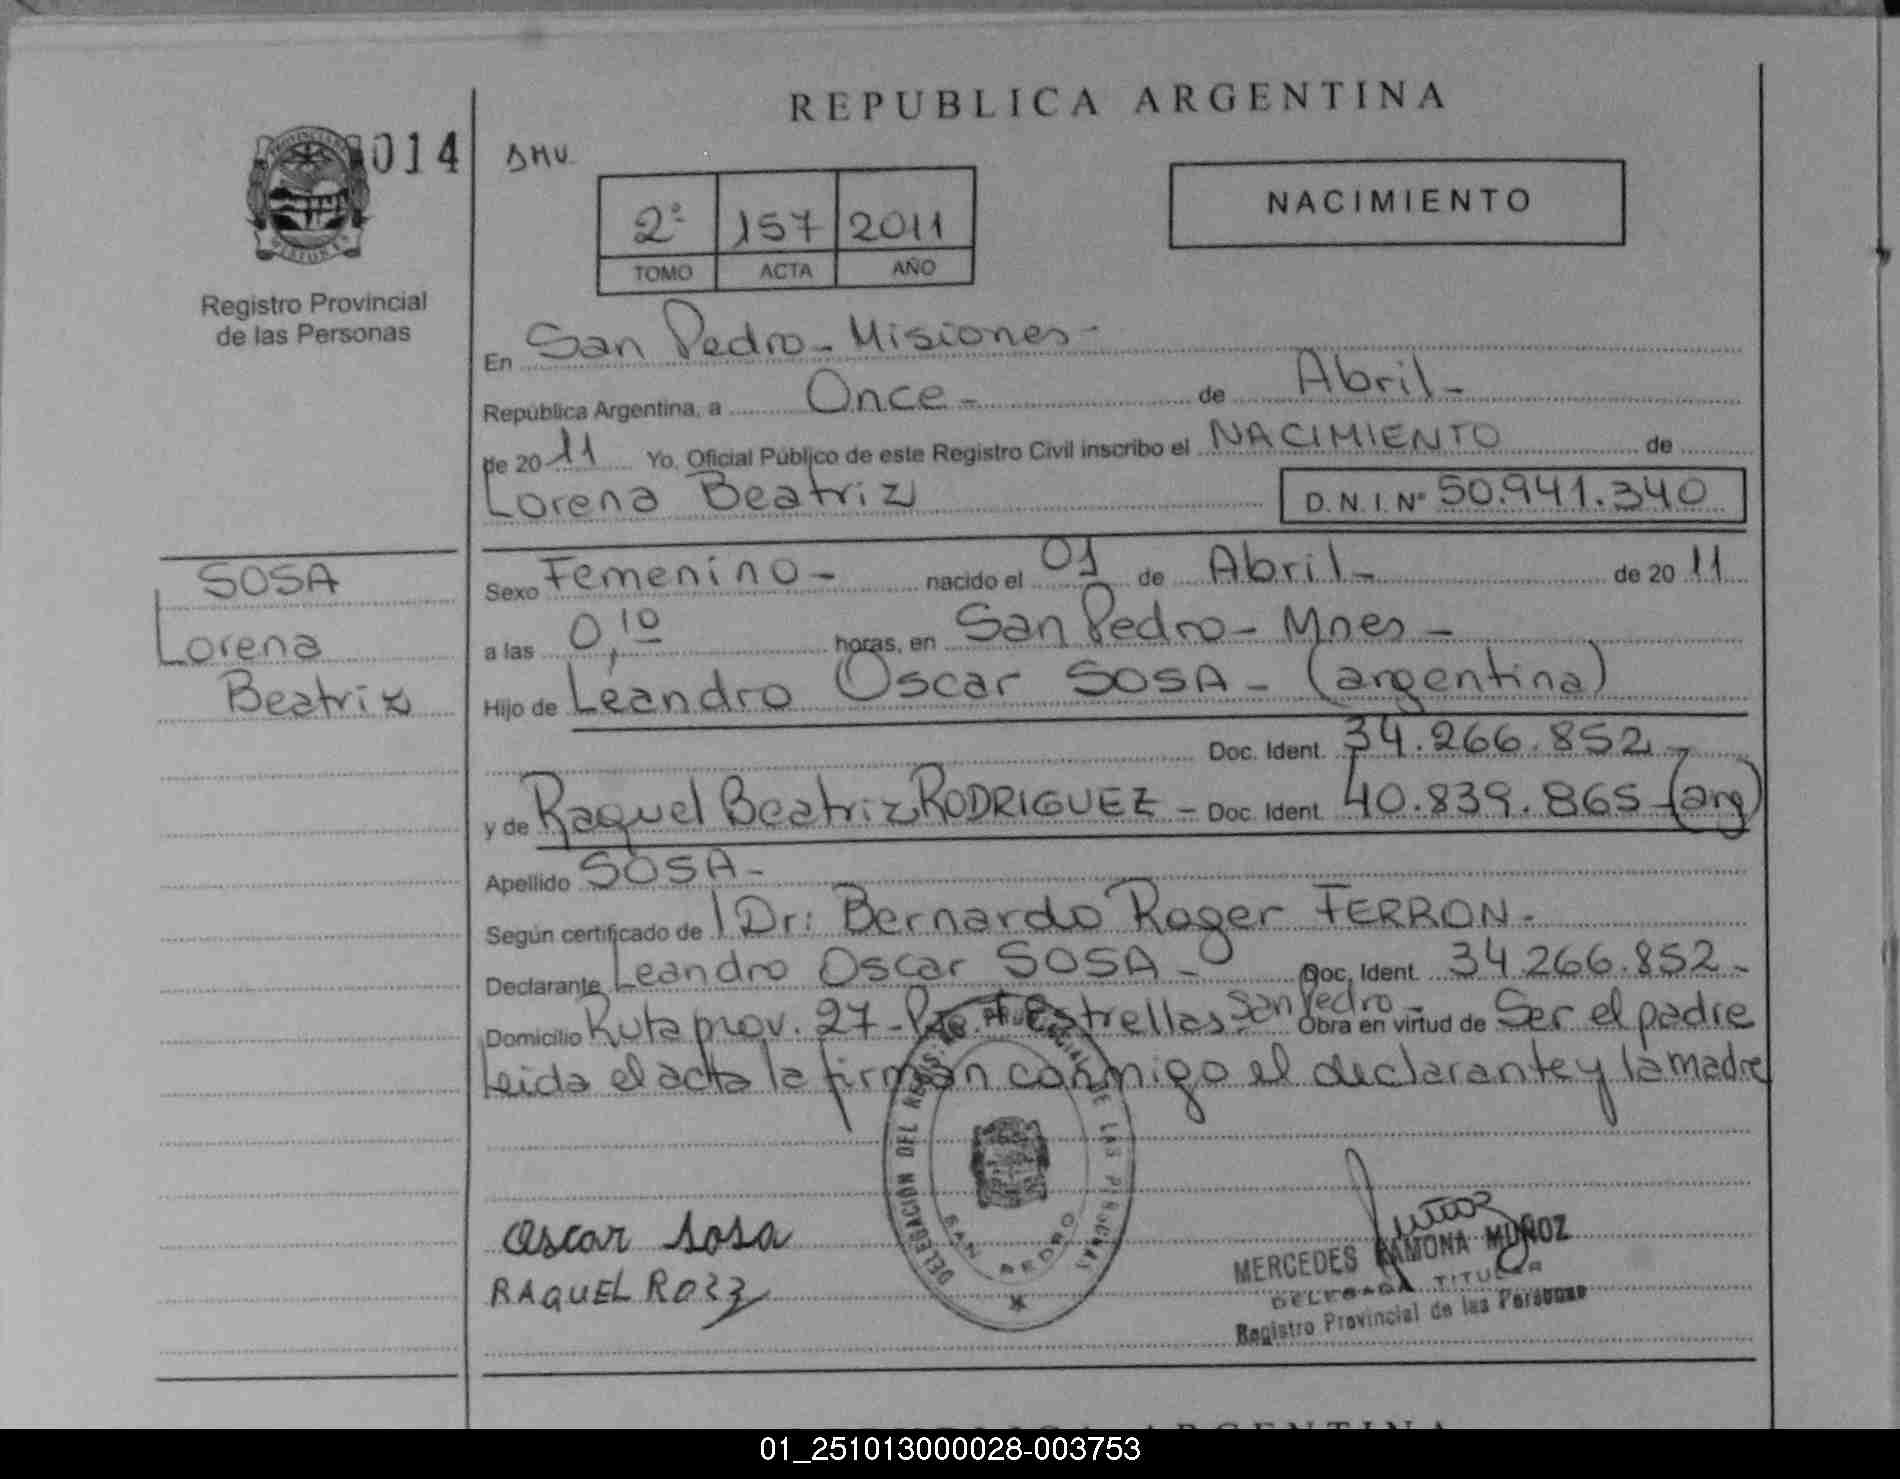 REPUBLICA ARGENTINA
014
DMU
NACIMIENTO
2º 157 2011
TOMO ACTA AÑO
Registro Provincial
de las Personas
En San Pedro - Misiones -
República Argentina, a Once - de Abril -
de 20 11 Yo, Oficial Público de este Registro Civil inscribo el NACIMIENTO de
Lorena Beatriz D.N.I. Nº 50.941.340
SOSA
Lorena
Beatriz
Sexo Femenino - nacido el 01 de Abril - de 20 11
a las 0,10 horas, en San Pedro - Mnes -
Hijo de Leandro Oscar SOSA - (argentina)
Doc. Ident. 34.266.852 -
y de Raquel Beatriz RODRIGUEZ - Doc. Ident. 40.839.865 - (arg)
Apellido SOSA -
Según certificado de Dr: Bernardo Roger FERRON -
Declarante Leandro Oscar SOSA - Doc. Ident. 34.266.852 -
Domicilio Ruta prov. 27 - Estrellas San Pedro - Obra en virtud de Ser el padre
Leida el acta la firman conmigo el declarante y la madre
DELEGACION DEL REG. PROVINCIAL DE LAS PERSONAS
SAN PEDRO
Oscar Sosa
RAQUEL
MERCEDES RAMONA MUÑOZ
DELEGADA TITULAR
Registro Provincial de las Personas
01_251013000028-003753